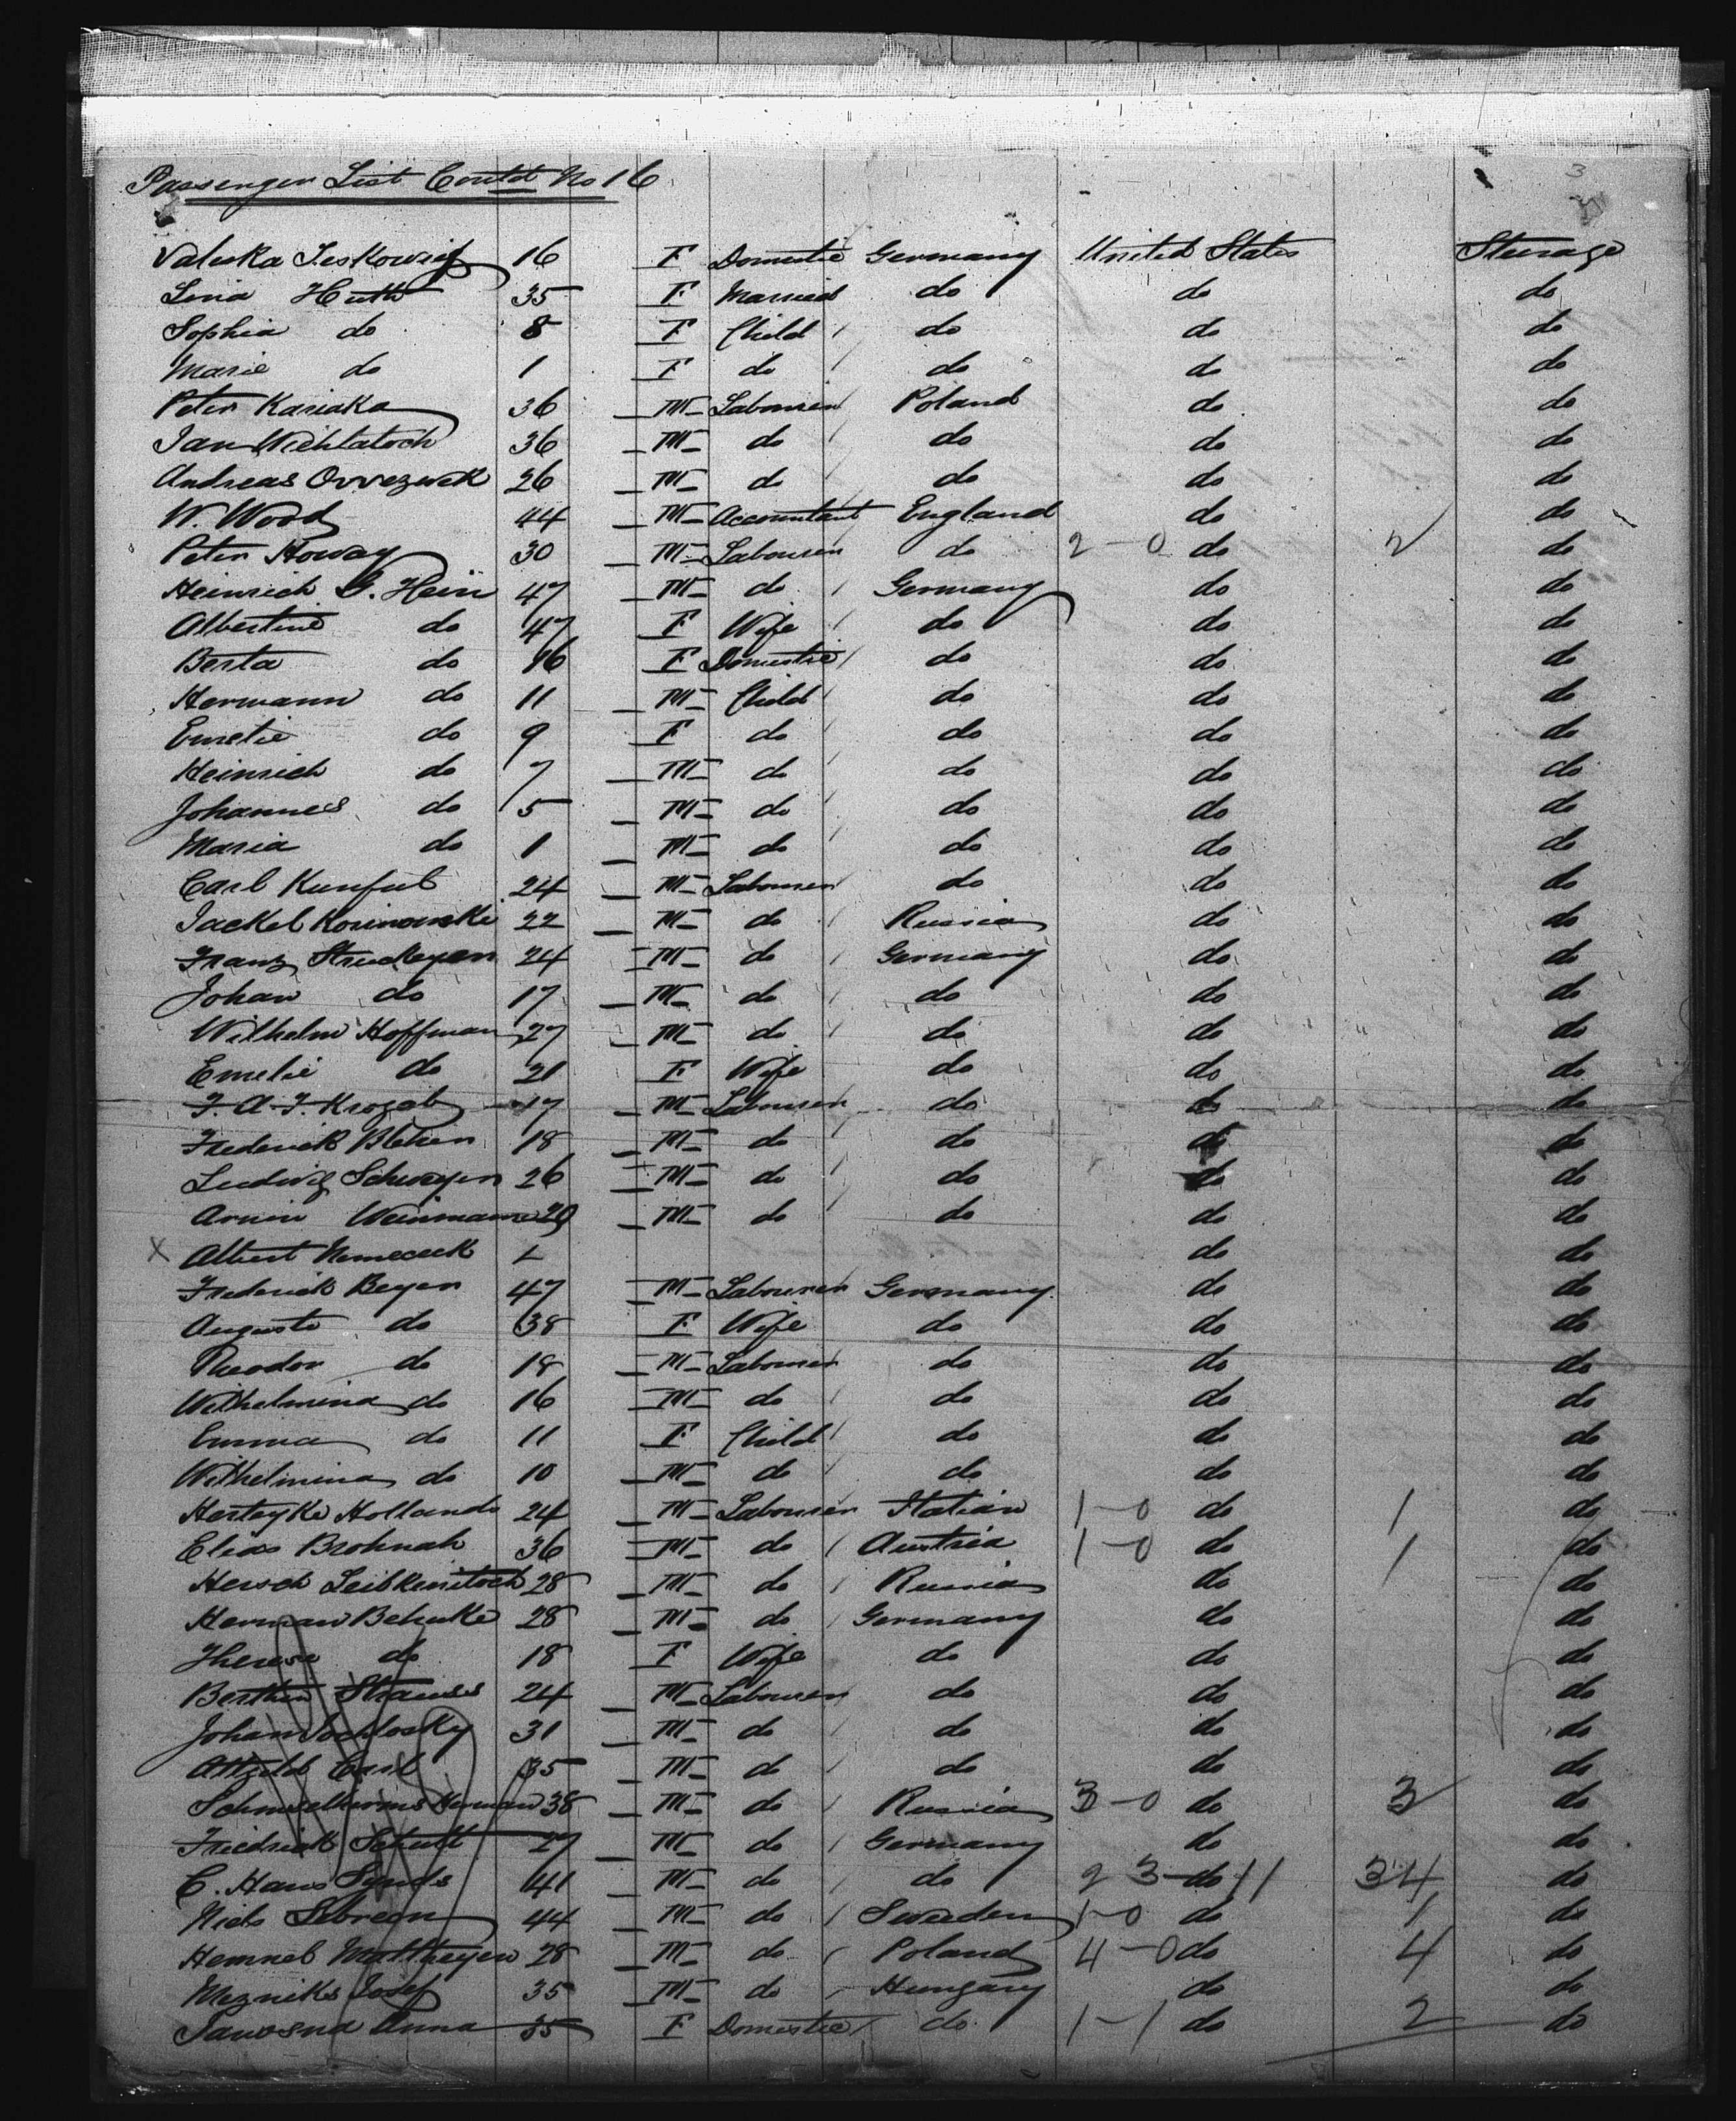 Passenger List Contd No 16
3
Valuska Jeskowitz 16 F Domestic Germany United States Steerage
Lina Huth 35 F Married do do do
Sophia do 8 F Child do do do
Marie do 1 F do do do do
Peter Kariaka 36 M Labourer Poland do do
Jan Wichlatoch 36 M do do do do
Andreas 26 M do do do do
W. Wood 44 M Accountant England do do
Peter Howay 30 M Labourer do 2-0 do 2 do
Heinrich G. Hein 47 M do Germany do do
Albertine do 47 F Wife do do do
Berta do 16 F Domestic do do do
Hermann do 11 M Child do do do
Emelie do 9 F do do do do
Heinrich do 7 M do do do do
Johannes do 5 M do do do do
Maria do 1 M do do do do
Carl Kunful 24 M Labourer do do do
Jackel Kosinowski 22 M do Russia do do
Franz 24 M do Germany do do
Johan do 17 M do do do do
Wilhelm Hoffman 27 M do do do do
Emelie do 21 F Wife do do do
F. A. F. 17 M Labourer do do do
Frederick 18 M do do do do
Ludwig 26 M do do do do
Armin Weinmann 29 M do do do do
X Albert Nemeceek do do
Frederick Beyer 47 M Labourer Germany do do
Auguste do 38 F Wife do do do
Theodor do 18 M Labourer do do do
Wilhelmina do 16 M do do do do
Emma do 11 F Child do do do
Wilhelmina do 10 M do do do do
Hollands 24 M Labourer Italian 1-0 do 1 do
Elias Brohnah 36 M do Austria 1-0 do 1 do
Hersch 28 M do Russia do do
Herman Behnke 28 M do Germany do do
Therese do 18 F Wife do do do
Strauss 24 M Labourer do do do
Johan 31 M do do do do
Carl 35 M do do do do
Herman 38 M do Russia 3-0 do 3 do
Friedrich Schult 27 M do Germany do do
C. Hans 41 M do do 23-do 11 34 do
Niels 44 M do Sweden 1-0 do 1 do
28 M do Poland 4-0 do 4 do
Mezniks Josef 35 M do Hungary do do
Anna 35 F Domestic do 1-1 do 2 do